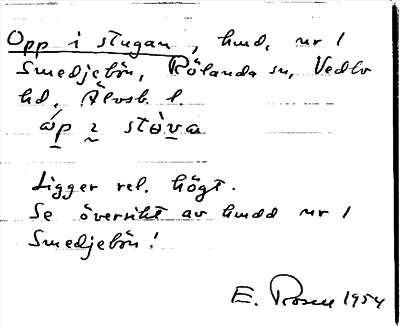 Opp i stugan, hmd, nr 1
Smedjebön, Rölanda sn, Vedbo
hd, Älvsb. l.
áp ı stòva
Ligger rel. högt.
Se översikt av hmdd nr 1
Smedjebön!
E. Rosell 1954